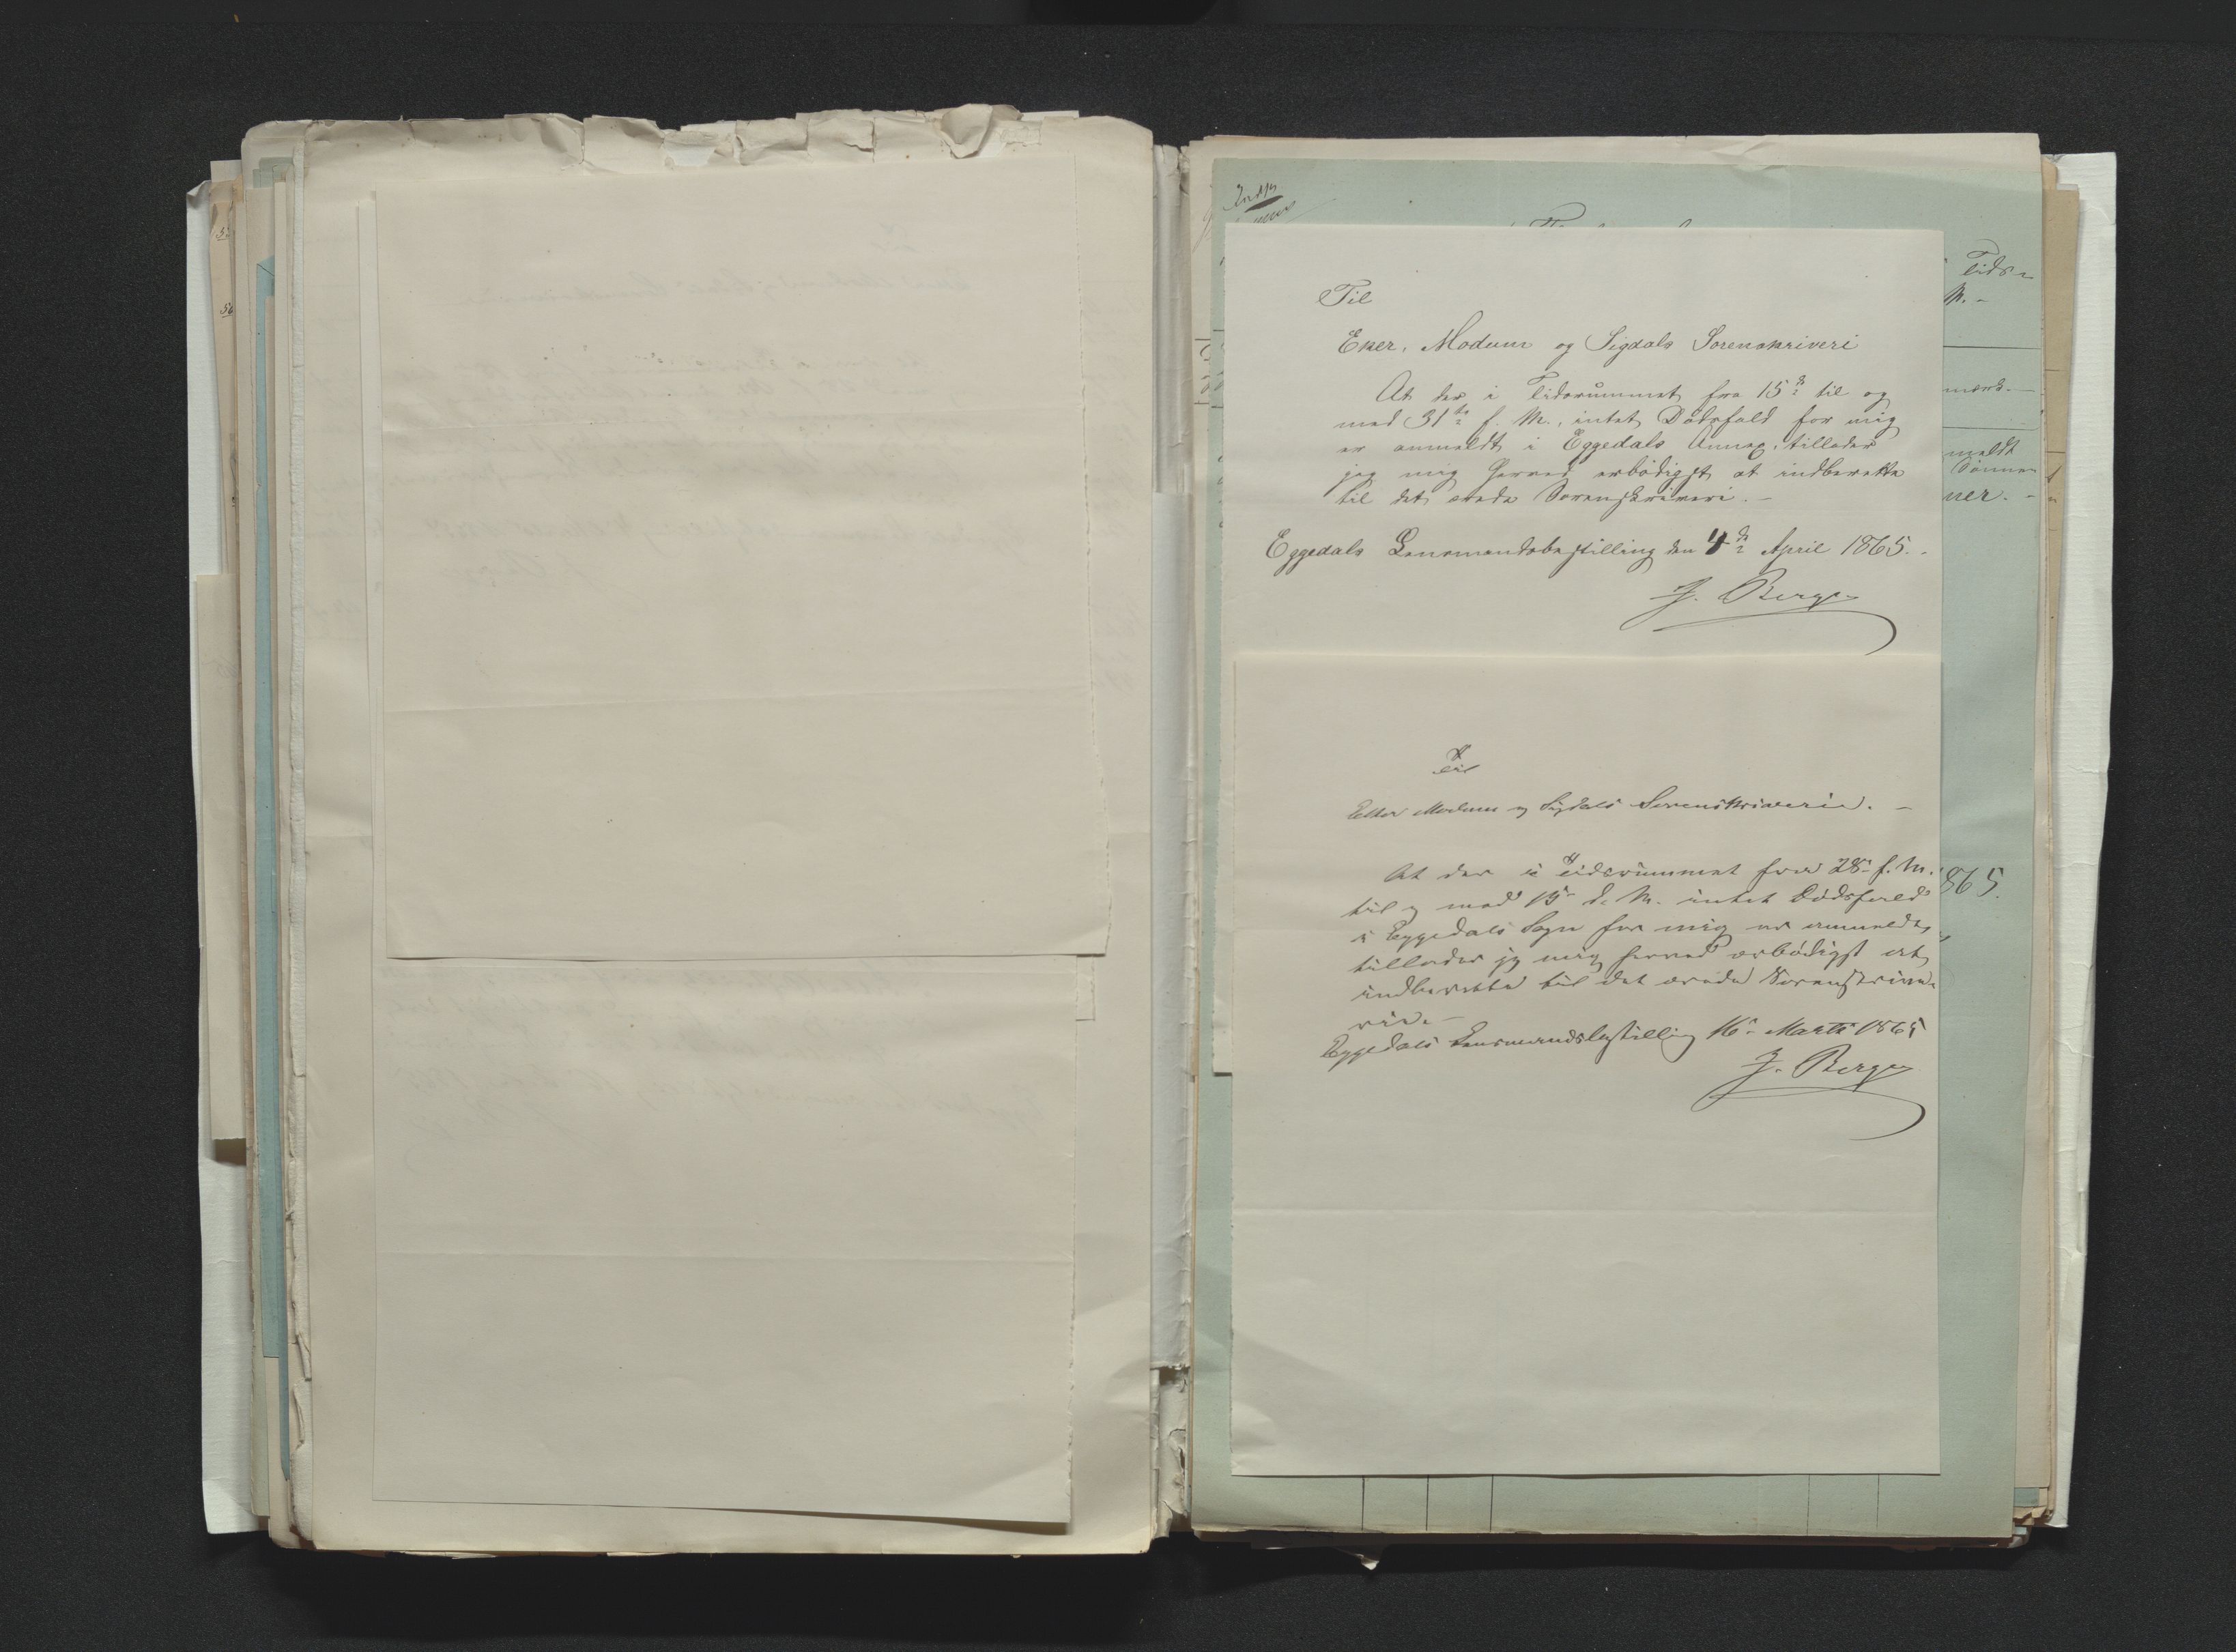 Til
Eker, Modum og Sigdals Sorenskriveri
At der i Tidsrummet fra 15de til og
med 31te f. M., intet Dödsfald for mig
er anmeldt i Eggedals Annex, tillader
jeg mig herved ærbödigst at indberette
til det ærede Sorenskriveri. –
Eggedals Lensmandsbestilling den 4de April 1865. –
J. Berge
Til
Eker Modum og Sigdals Sorenskriveri. –
At der i Tidsrummet fra 28 f. M.
til og med 15 d. M. intet Dödsfald
i Eggedals Sogn for mig er anmeldt,
tillader jeg mig herved ærbödigst at
indberette til det ærede Sorenskrive-
rie. –
Eggedals Lensmandsbestilling 16 Marts 1865
J. Berge
Tids-
M. –
mærk. –
meldt
ner. –
865.